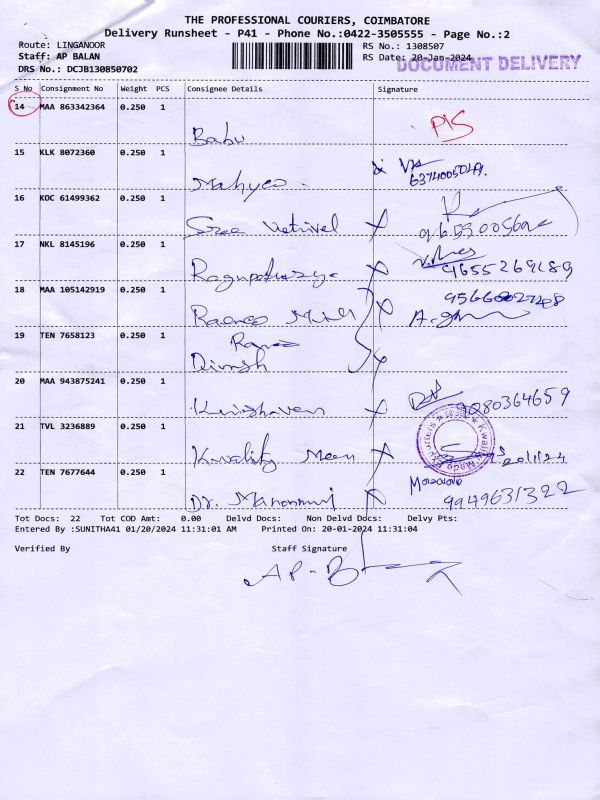 THE PROFESSIONAL COURIERS, COIMBATORE
Delivery Runsheet - P41 - Phone No.:0422-3505555 - Page No.:2
Route: LINGANOOR
RS No.: 1308507
Staff: AP BALAN
RS Date: 20-Jan-2024
DOCUMENT DELIVERY
DRS No.: DCJB130850702
S No Consignment No Weight PCS Consignee Details Signature
14 MAA 863342364 0.250 1
Babu P/S
15 KLK 8072360 0.250 1
Mahyco
16 KOC 61499362 0.250 1
Sree Vetrivel
17 NKL 8145196 0.250 1
9655269189
18 MAA 105142919 0.250 1
19 TEN 7658123 0.250 1
Dinesh
20 MAA 943875241 0.250 1
9080364659
21 TVL 3236889 0.250 1
Kwality 20/1/24
22 TEN 7677644 0.250 1
Dr. 9949631322
Tot Docs: 22 Tot COD Amt: 0.00 Delvd Docs: Non Delvd Docs: Delvy Pts:
Entered By :SUNITHA41 01/20/2024 11:31:01 AM Printed On: 20-01-2024 11:31:04
Verified By Staff Signature
AP-B